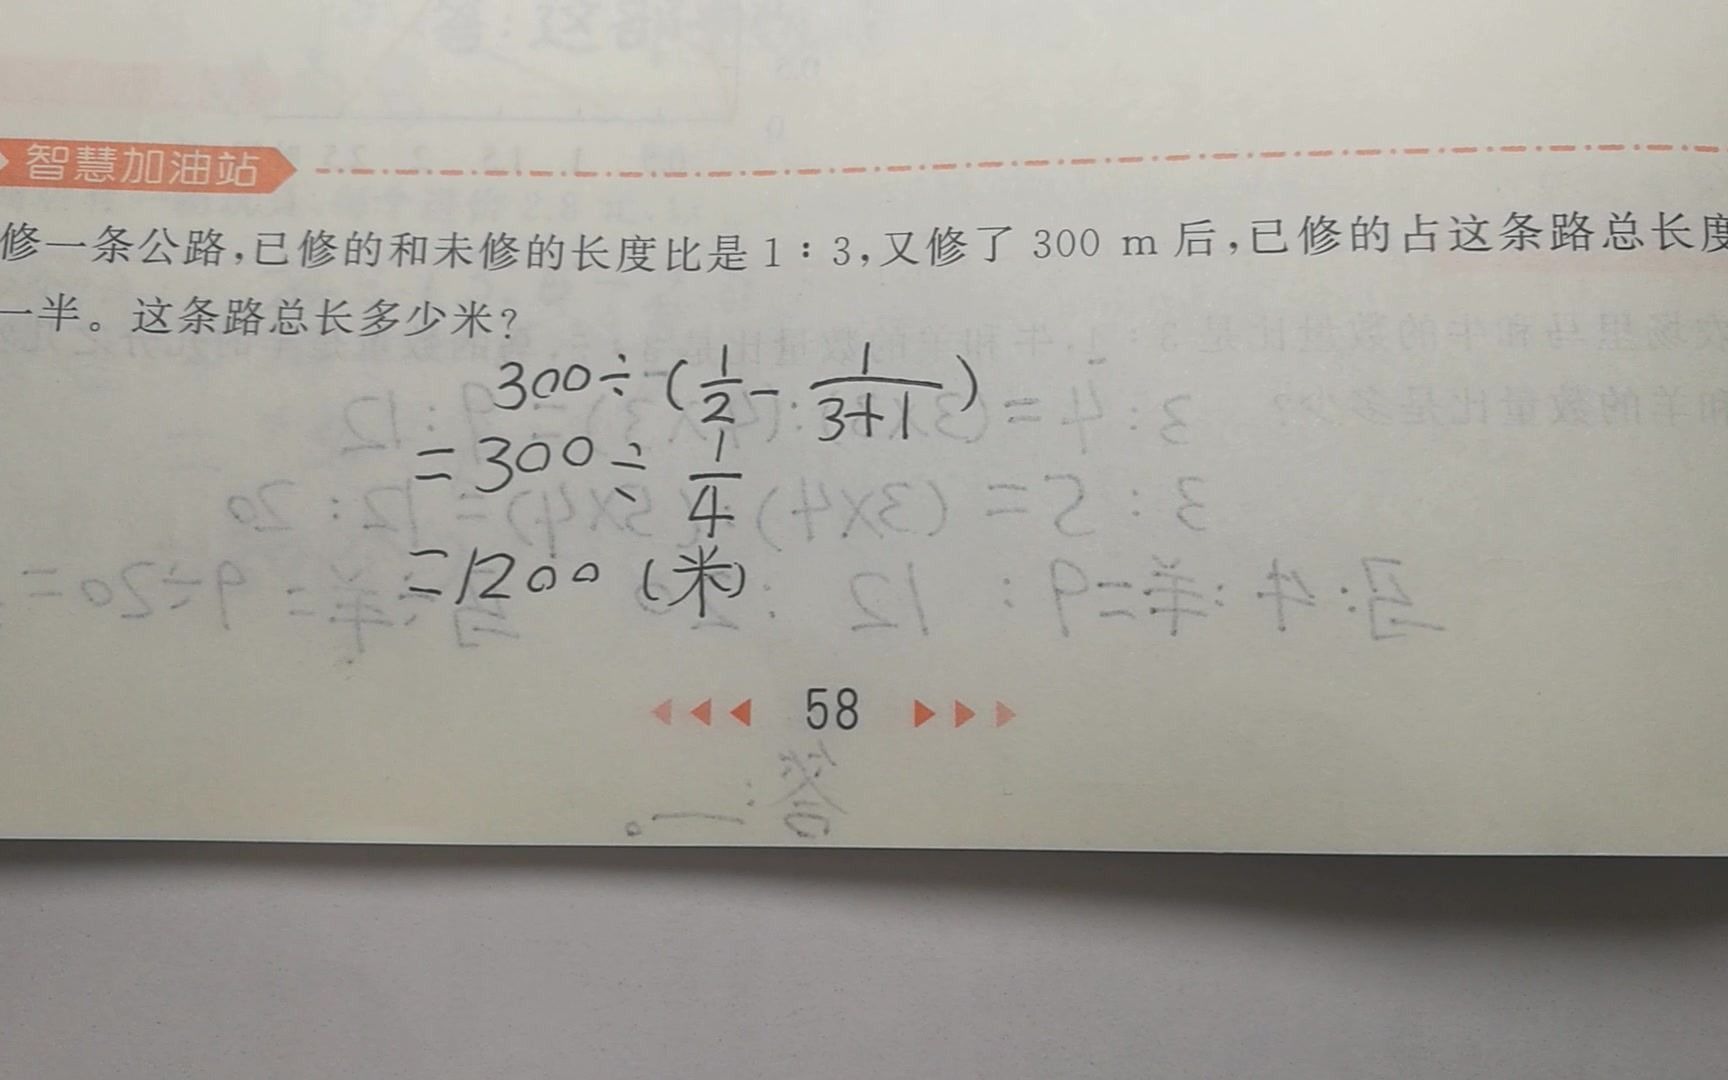 智慧加油站
修一条公路,已修的和未修的长度比是1:3,又修了 300 m 后,已修的占这条路总长度
一半。这条路总长多少米?
300÷(1/2-1/(3+1))
=300÷1/4
=1200(米)
58